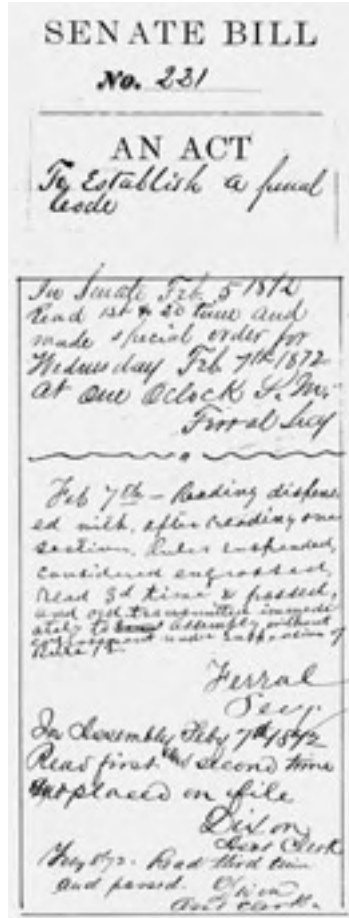 SENATE BILL
No. 221
AN ACT
To Establish a penal
code
In Senate Feb 5 1872
Read 1st & 2d time and
made special order for
Wednesday Feb 7th 1872
at one Oclock P.M.
Ferral Secy
Feb 7th — Reading dispens
ed with, after reading one
section, Rules suspended,
considered engrossed,
read 3d time & passed,
and ord transmitted immedi
ately to Assembly without
under suspension of
Rule
Ferral
Secy.
In Assembly Feby 7th 1872
Read first and second time
placed on file
Dixon
Asst Clerk
Feby Read third time
and passed. Dixon
Asst Clerk.